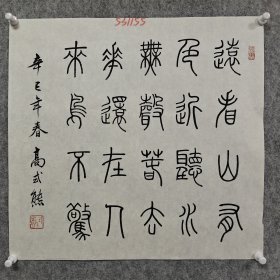 遠看山有
色近聽水
無聲春去
華還在人
來鳥不驚
辛巳年春高式熊